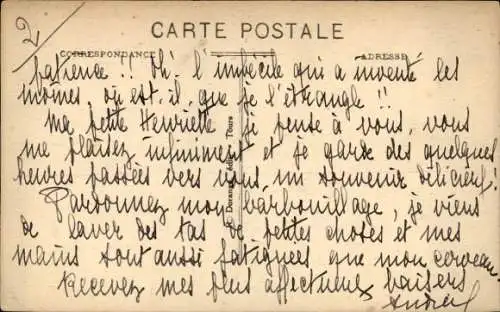 2
CARTE POSTALE
CORRESPONDANCE
ADRESSE
patience !! Oh! l'imbécile qui a inventé les
momes, où est-il, que je l'étrangle !!
Ma petite Henriette je pense à vous, vous
me plaisez infiniment et je garde des quelques
heures passées vers vous, un souvenir délicieux!
Pardonnez mon barbouillage, je viens
de laver des tas de petites choses et mes
mains sont aussi fatiguées que mon cerveau.
Recevez mes plus affectueux baisers
Tours